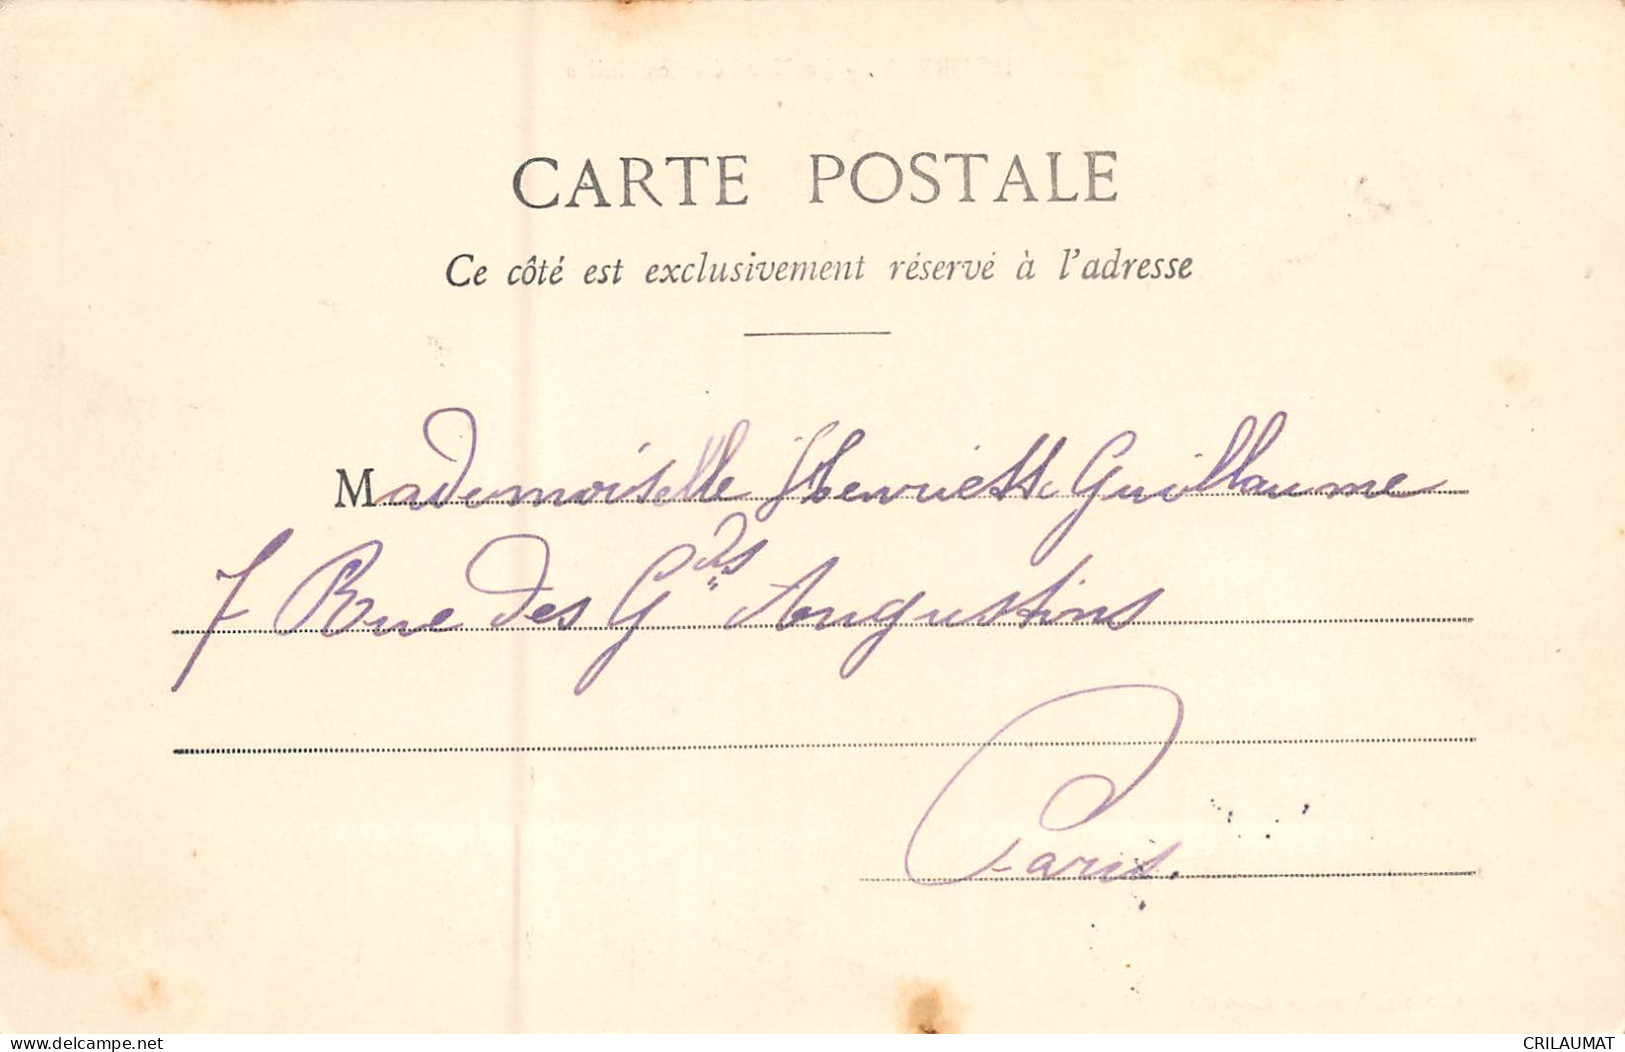 CARTE POSTALE
Ce côté est exclusivement réservé à l'adresse
Mademoiselle Henriette Guillaume
7 Rue des Gds Augustins
Paris.
www.delcampe.net
CRILAUMAT